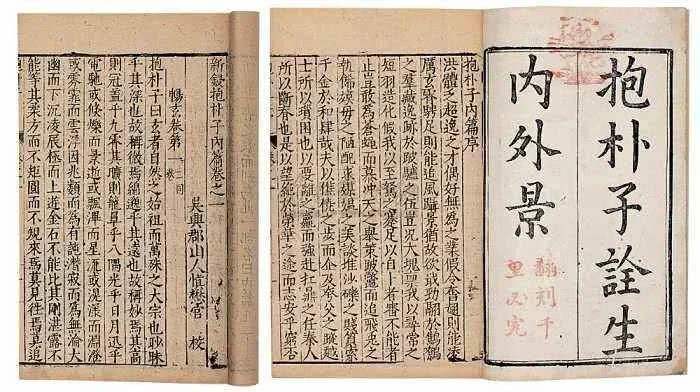 抱朴子詮生
內外景
翻刻千
里必究
抱朴子內篇序
洪體乏超逸之才偶好無為之業假令奮翅則能凌
厲玄霄騁足則能追風躡景猶故欲戢勁翮於鷦鷃
之羣藏逸跡於跛驢之伍豈況大塊稟我以尋常之
短羽造化假我以至駑之蹇足以自卜者審不能者
止豈敢為蒼蠅而慕冲天之舉策跛鱉而追飛兔之
軌飾嫫母之陋求媒之美談堆沙礫之賤質索
千金於和肆哉夫以僬僥之步而企及夸父之蹤
士所以困也以要離之羸而強赴扛鼎之任秦人
所以斷筋也是以望絕於榮華之途而志安乎窮否
新鋟抱朴子內篇卷之一
吳興郡山人慎懋官 校
暢玄卷第一
抱朴子曰玄者自然之始祖而萬殊之大宗也眇眛
乎其深也故稱微焉綿邈乎其遠也故稱妙焉其高
則冠蓋乎九霄其曠則籠罩乎八隅光乎日月迅乎
電馳或倏爍而景逝或飄滭而星流或滉漾而淵澄
或雰霏而雲浮因兆類而為有託潛寂而為無淪大
幽而下沉凌辰極而上遊金石不能比其剛湛露不
能等其柔方而不矩圓而不規來焉莫見往焉莫追